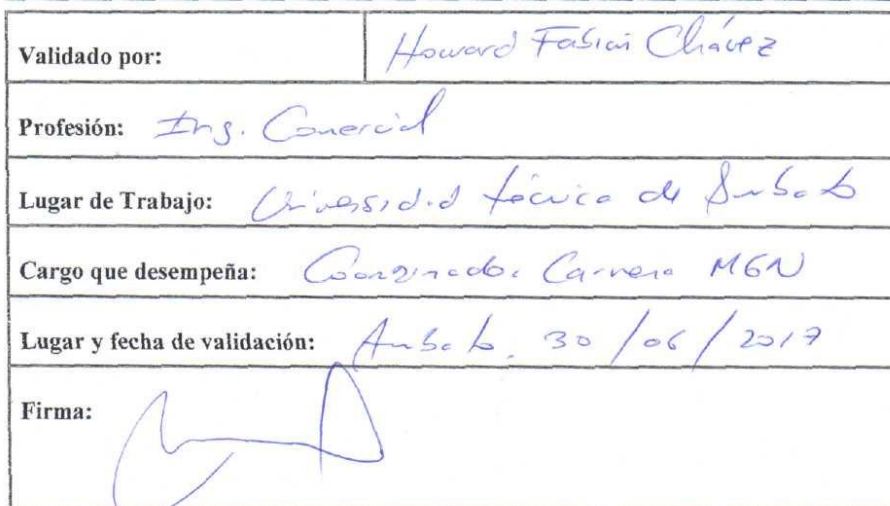 Validado por: Howard Fabian Chávez
Profesión: Ing. Comercial
Lugar de Trabajo: Universidad técnica de Ambato
Cargo que desempeña: Coordinador Carrera MGN
Lugar y fecha de validación: Ambato, 30/06/2017
Firma: